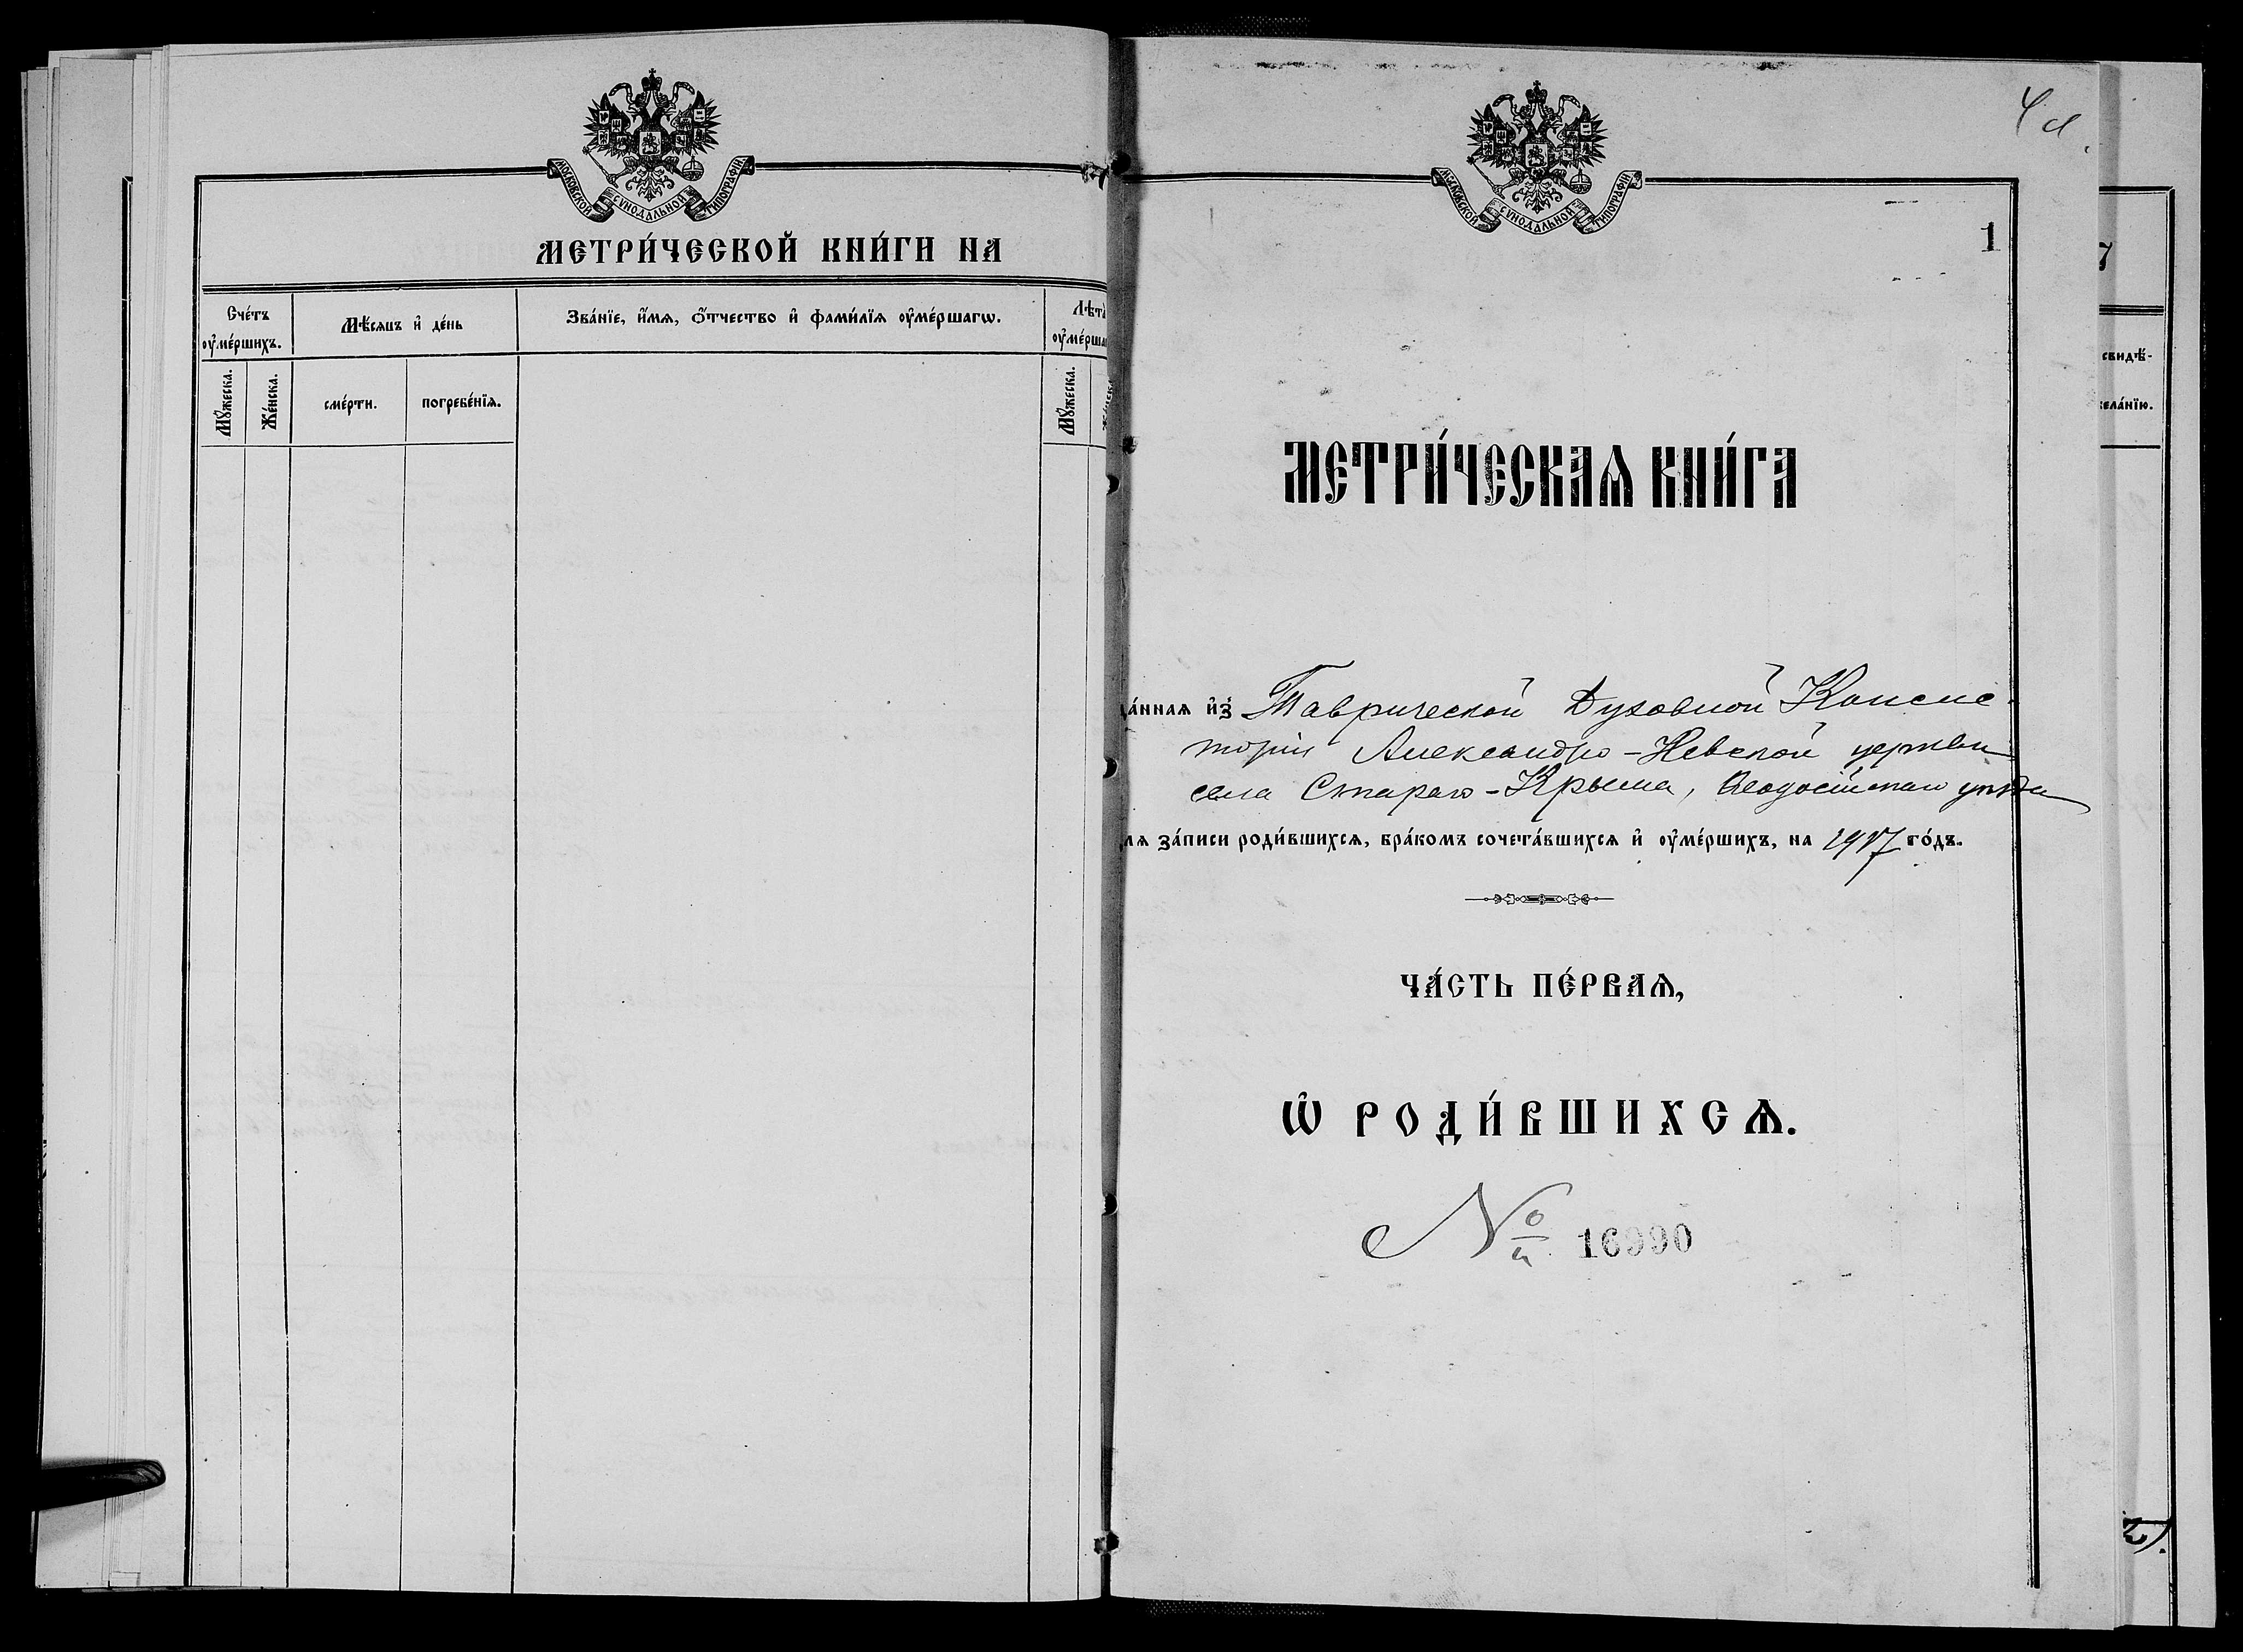 МОСКОВСКОЙ СѴНОДАЛЬНОЙ ТИПОГРАФІИ
МЕТРИ́ЧЕСКОЙ КНИ́ГИ НА
Сче́тъ ᲂу҆ме́ршихъ.
Мѣ́сяцъ и҆ де́нь
Зва́нїе, и҆́мѧ, ѻ҆́тчество и҆ фами́лїѧ ᲂу҆ме́ршагѡ.
Лѣта̀
ᲂу҆ме́рша
Мꙋ́жеска.
Же́нска.
сме́рти.
погребе́нїѧ.
Мꙋ́жеска.
МОСКОВСКОЙ СѴНОДАЛЬНОЙ ТИПОГРАФІИ
1
МЕТРИ́ЧЕСКАѦ КНИ́ГА
да́ннаѧ и҆з̾ Таврической Духовной Консис-
торіи Александро-Невской церкви
села Стараго-Крыма, Ѳеодосійскаго уѣзда
для за́писи роди́вшихсѧ, бра́комъ сочета́вшихсѧ и҆ ᲂу҆ме́ршихъ, на 1917 го́дъ.
ЧА́СТЬ ПЕ́РВАѦ,
Ѡ҆ РОДИ́ВШИХСѦ.
№ 16990
7
свидѣ́-
жела́нїю.